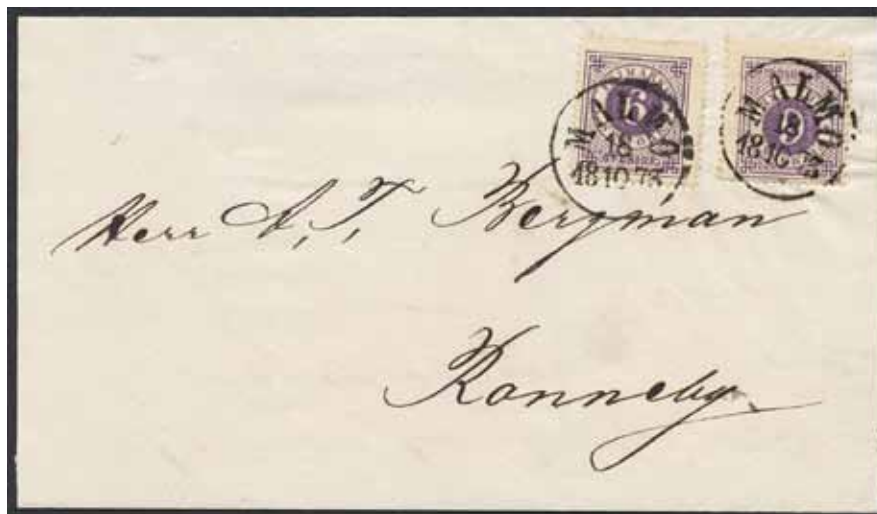 6
MALMÖ
18
18 10 75
9
MALMÖ
18
18 10 75
Herr A. T. Bergman
Ronneby